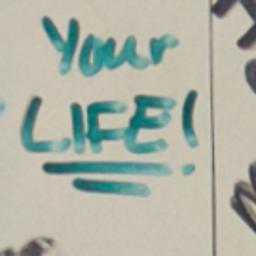 Your
LIFE!